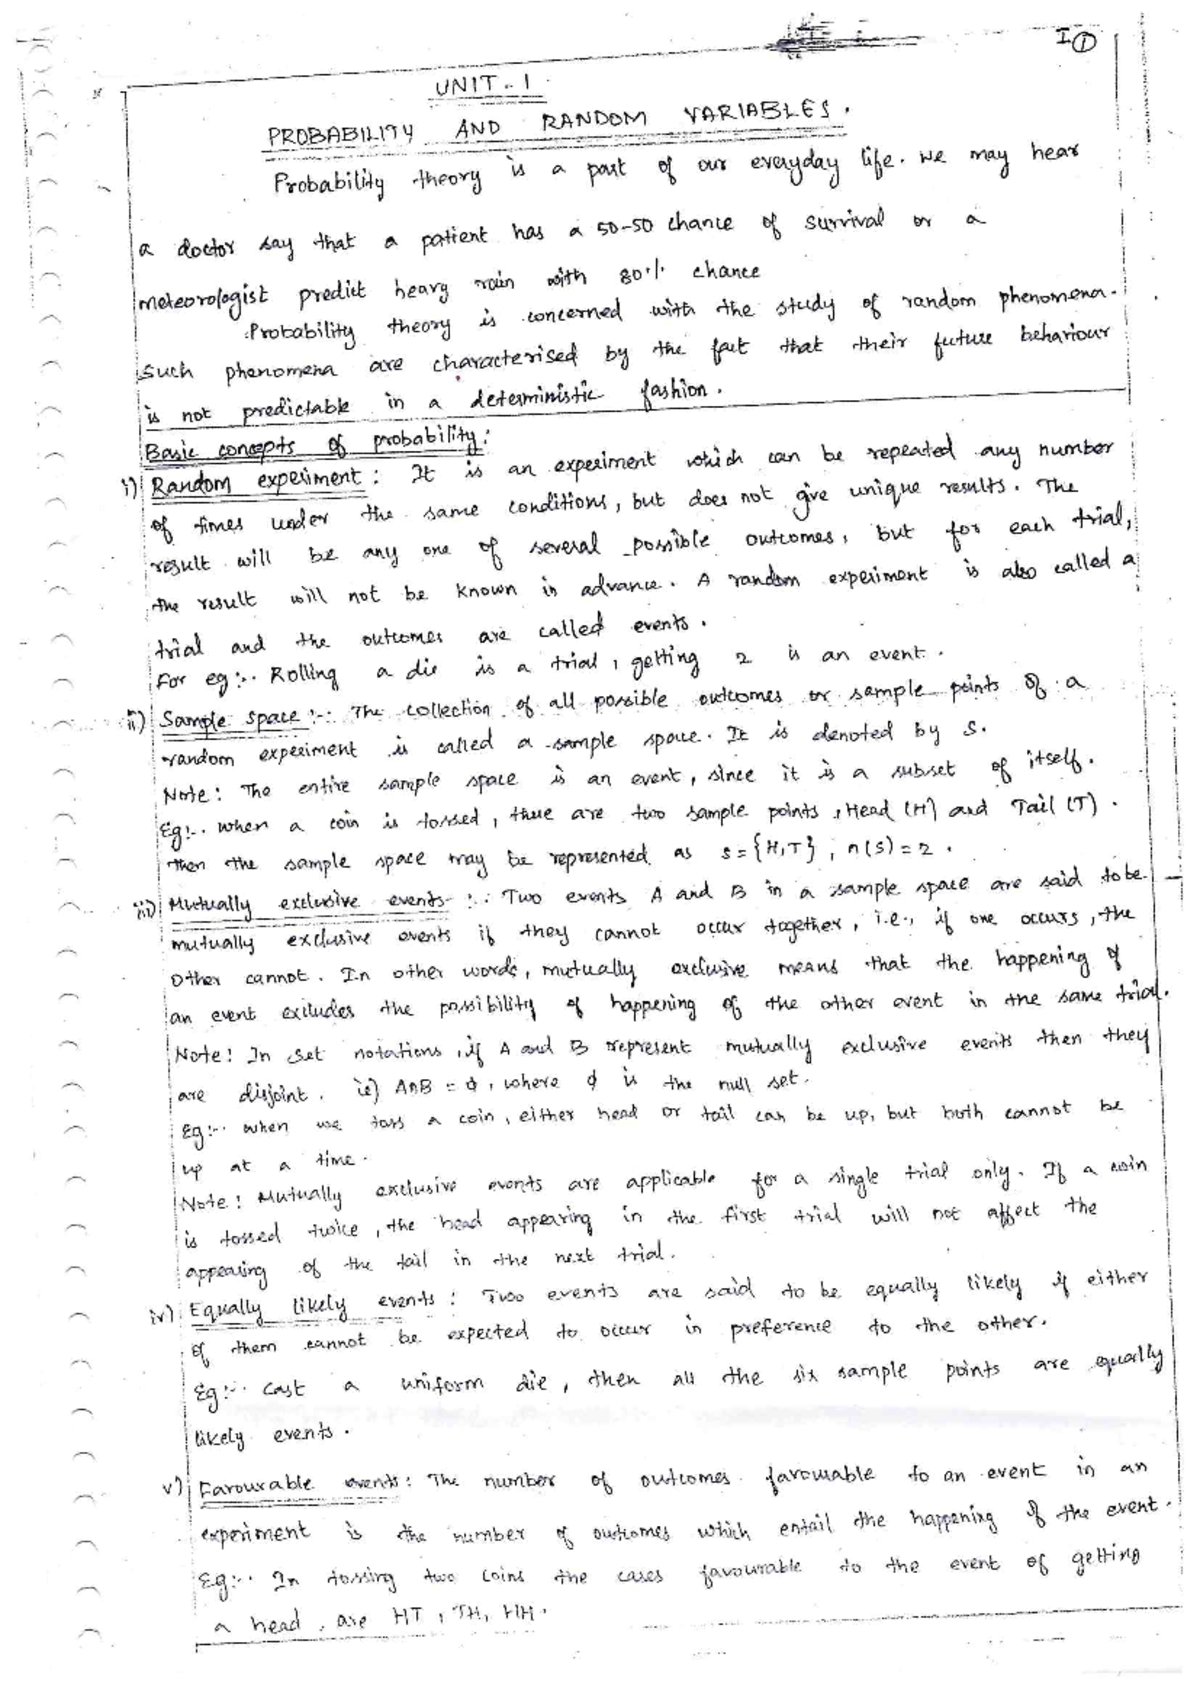 I ①
UNIT - 1
PROBABILITY AND RANDOM VARIABLES.
Probability theory is a part of our everyday life. We may hear
a doctor say that a patient has a 50-50 chance of survival or a
meteorologist predict heavy rain with 80% chance
Probability theory is concerned with the study of random phenomena.
Such phenomena are characterised by the fact that their future behaviour
is not predictable in a deterministic fashion.
Basic concepts of probability:
i) Random experiment: It is an experiment which can be repeated any number
of times under the same conditions, but does not give unique results. The
result will be any one of several possible outcomes, but for each trial,
the result will not be known in advance. A random experiment is also called a
trial and the outcomes are called events.
For eg:- Rolling a die is a trial, getting 2 is an event.
ii) Sample space :- The collection of all possible outcomes or sample points of a
random experiment is called a sample space. It is denoted by S.
Note: The entire sample space is an event, since it is a subset of itself.
Eg:- When a coin is tossed, there are two sample points, Head (H) and Tail (T).
Then the sample space may be represented as S={H,T}, n(S)=2.
iii) Mutually exclusive events :- Two events A and B in a sample space are said to be
mutually exclusive events if they cannot occur together, i.e., if one occurs, the
other cannot. In other words, mutually exclusive means that the happening of
an event excludes the possibility of happening of the other event in the same trial.
Note: In set notations, if A and B represent mutually exclusive events then they
are disjoint. ie) A∩B = ϕ, where ϕ is the null set.
Eg:- When we toss a coin, either head or tail can be up, but both cannot be
up at a time.
Note: Mutually exclusive events are applicable for a single trial only. If a coin
is tossed twice, the head appearing in the first trial will not affect the
appearing of the tail in the next trial.
iv) Equally likely events: Two events are said to be equally likely if either
of them cannot be expected to occur in preference to the other.
Eg:- Cast a uniform die, then all the six sample points are equally
likely events.
v) Favourable events: The number of outcomes favourable to an event in an
experiment is the number of outcomes which entail the happening of the event.
Eg:- In tossing two coins the cases favourable to the event of getting
a head, are HT, TH, HH.